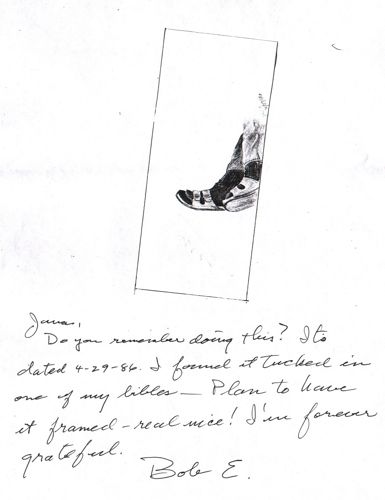 Do you remember doing this? Its
dated 4-29-86. I found it tucked in
one of my bibles — Plan to have
it framed - real nice! I'm forever
grateful.
Bob E.